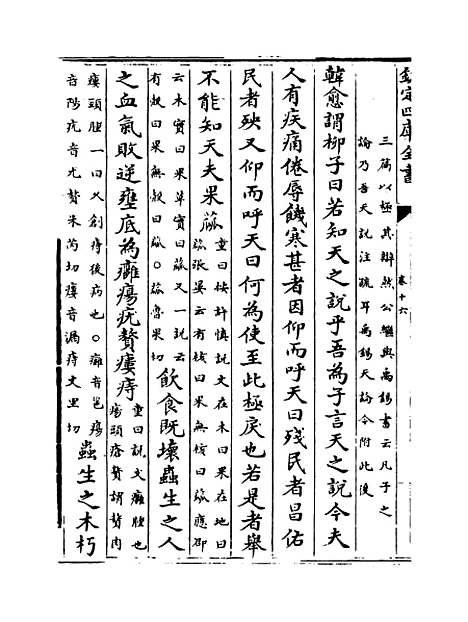 欽定四庫全書
卷十六
三篇以極其辯然公繼與禹錫書云凡子之
論乃吾天說注疏耳禹錫天論今附此後
韓愈謂柳子曰若知天之說乎吾為子言天之說今夫
人有疾痛倦辱饑寒甚者因仰而呼天曰殘民者昌佑
民者殃又仰而呼天曰何為使至此極戾也若是者舉
不能知天夫果蓏
童曰按許慎說文在木曰果在地曰
蓏張晏云有核曰果無核曰蓏應邵
云木實曰果草實曰蓏又一說云
有殼曰果無殼曰蓏○蓏魯果切
飲食既壞蟲生之人
之血氣敗逆壅底為癰瘍疣贅瘻痔
童曰說文癰腫也
瘍頭瘡贅謂贅肉
瘻頭腫一曰久創痔後病也○癰音邕瘍
音陽疣音尤贅朱芮切瘻音漏痔丈里切
蟲生之木朽